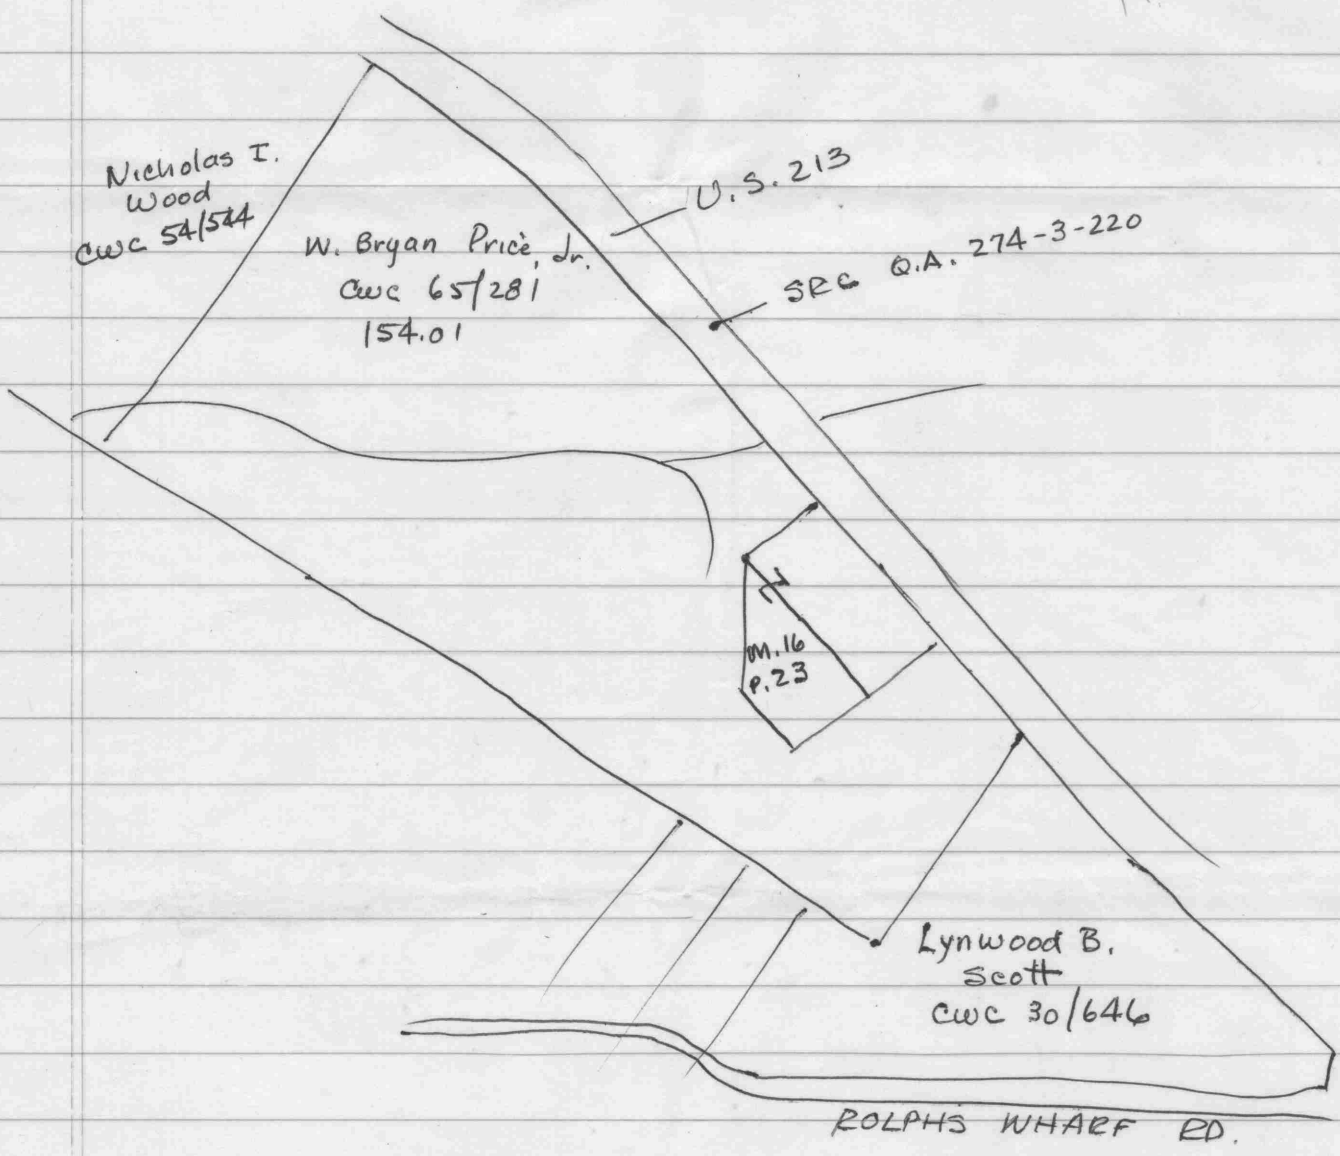 Nicholas I.
Wood
CWC 54/544
W. Bryan Price, Jr.
CWC 65/281
154.01
U.S. 213
SRC Q.A. 274-3-220
m.16
p.23
Lynwood B.
Scott
CWC 30/646
ROLPHS WHARF RD.